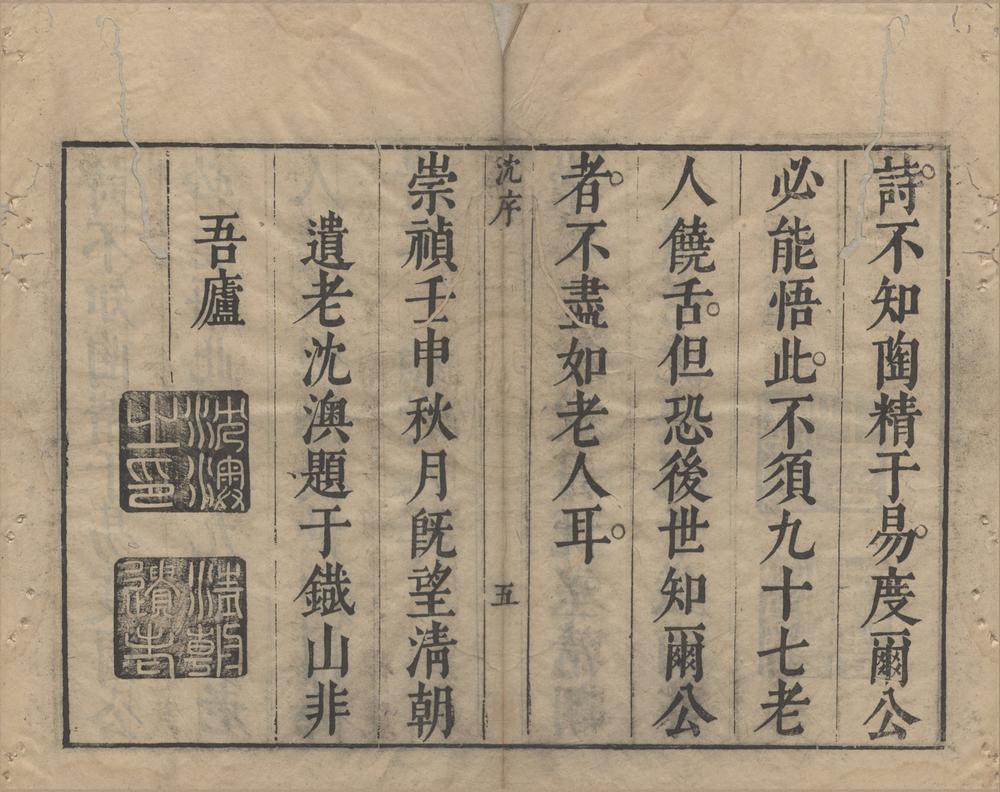 詩不知陶精于易度爾公
必能悟此不須九十七老
人饒舌但恐後世知爾公
者不盡如老人耳
沈序
五
崇禎壬申秋月既望淸朝
遺老沈澳題于鐡山非
吾廬
沈澳之印
淸朝遺老